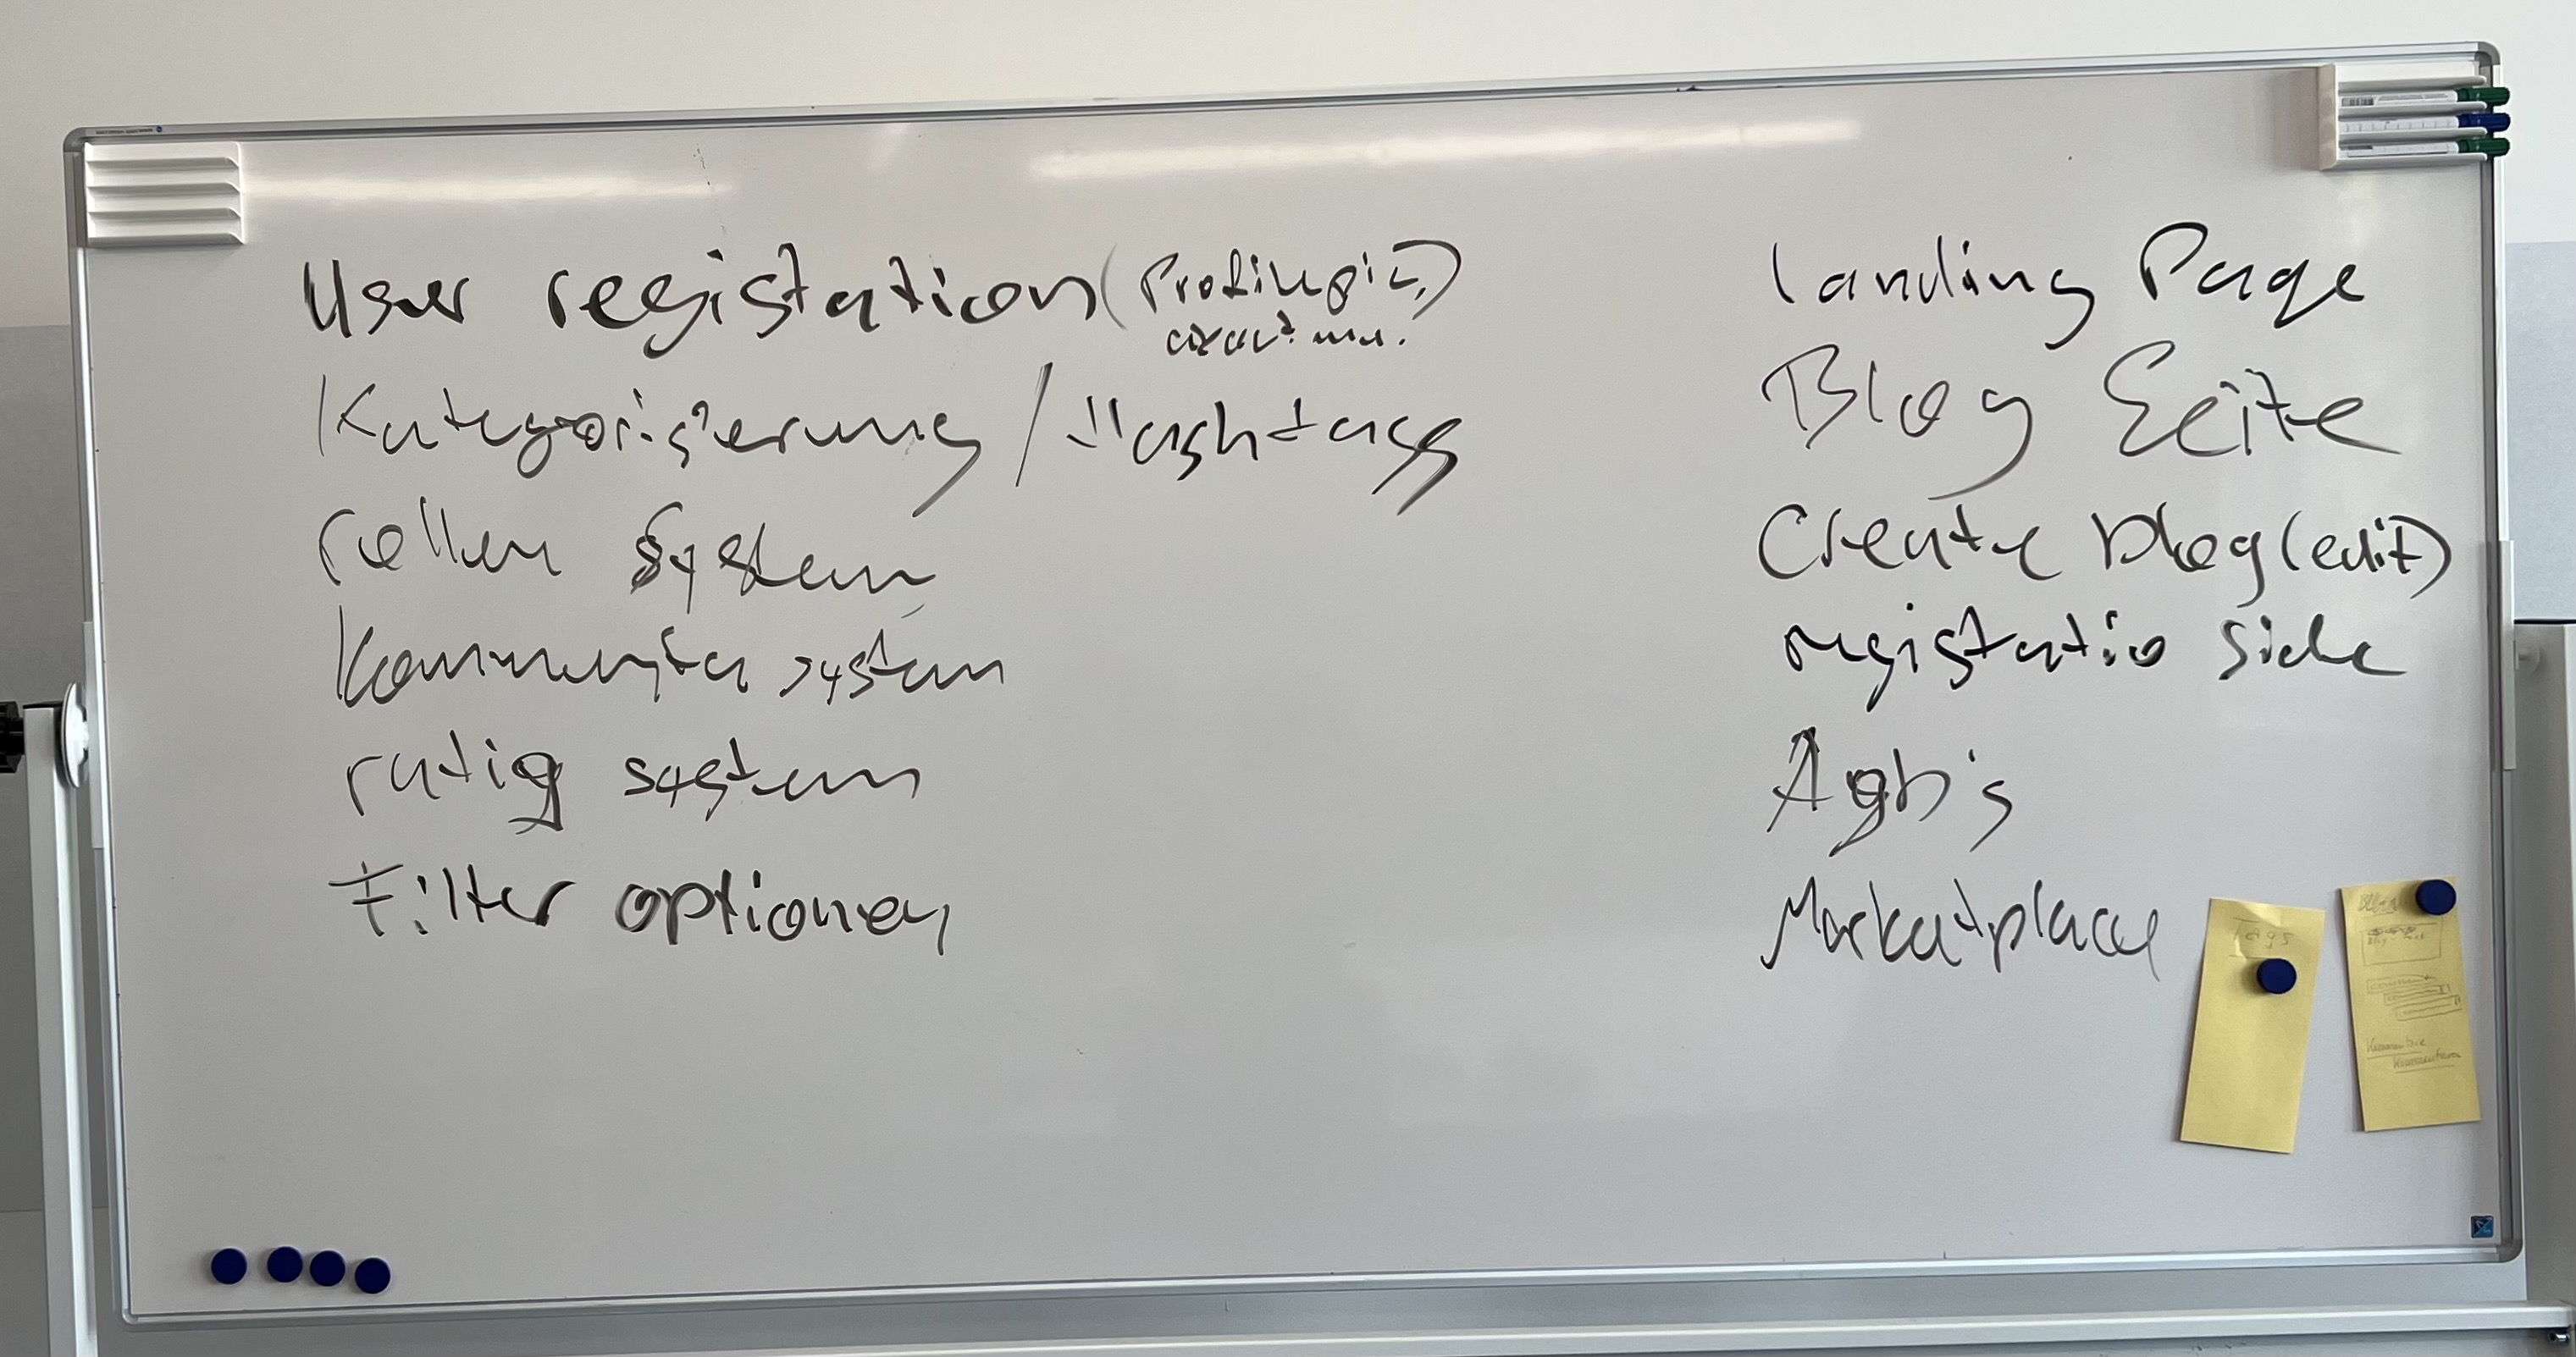 User registation (Profilepic,)
Kategorisierung / Hashtags
rollen System
Kommentar system
ratig system
Filter optionen
landing Page
Blog Seite
Create blog (edit)
registratio side
Agb's
Marketplace
Tags